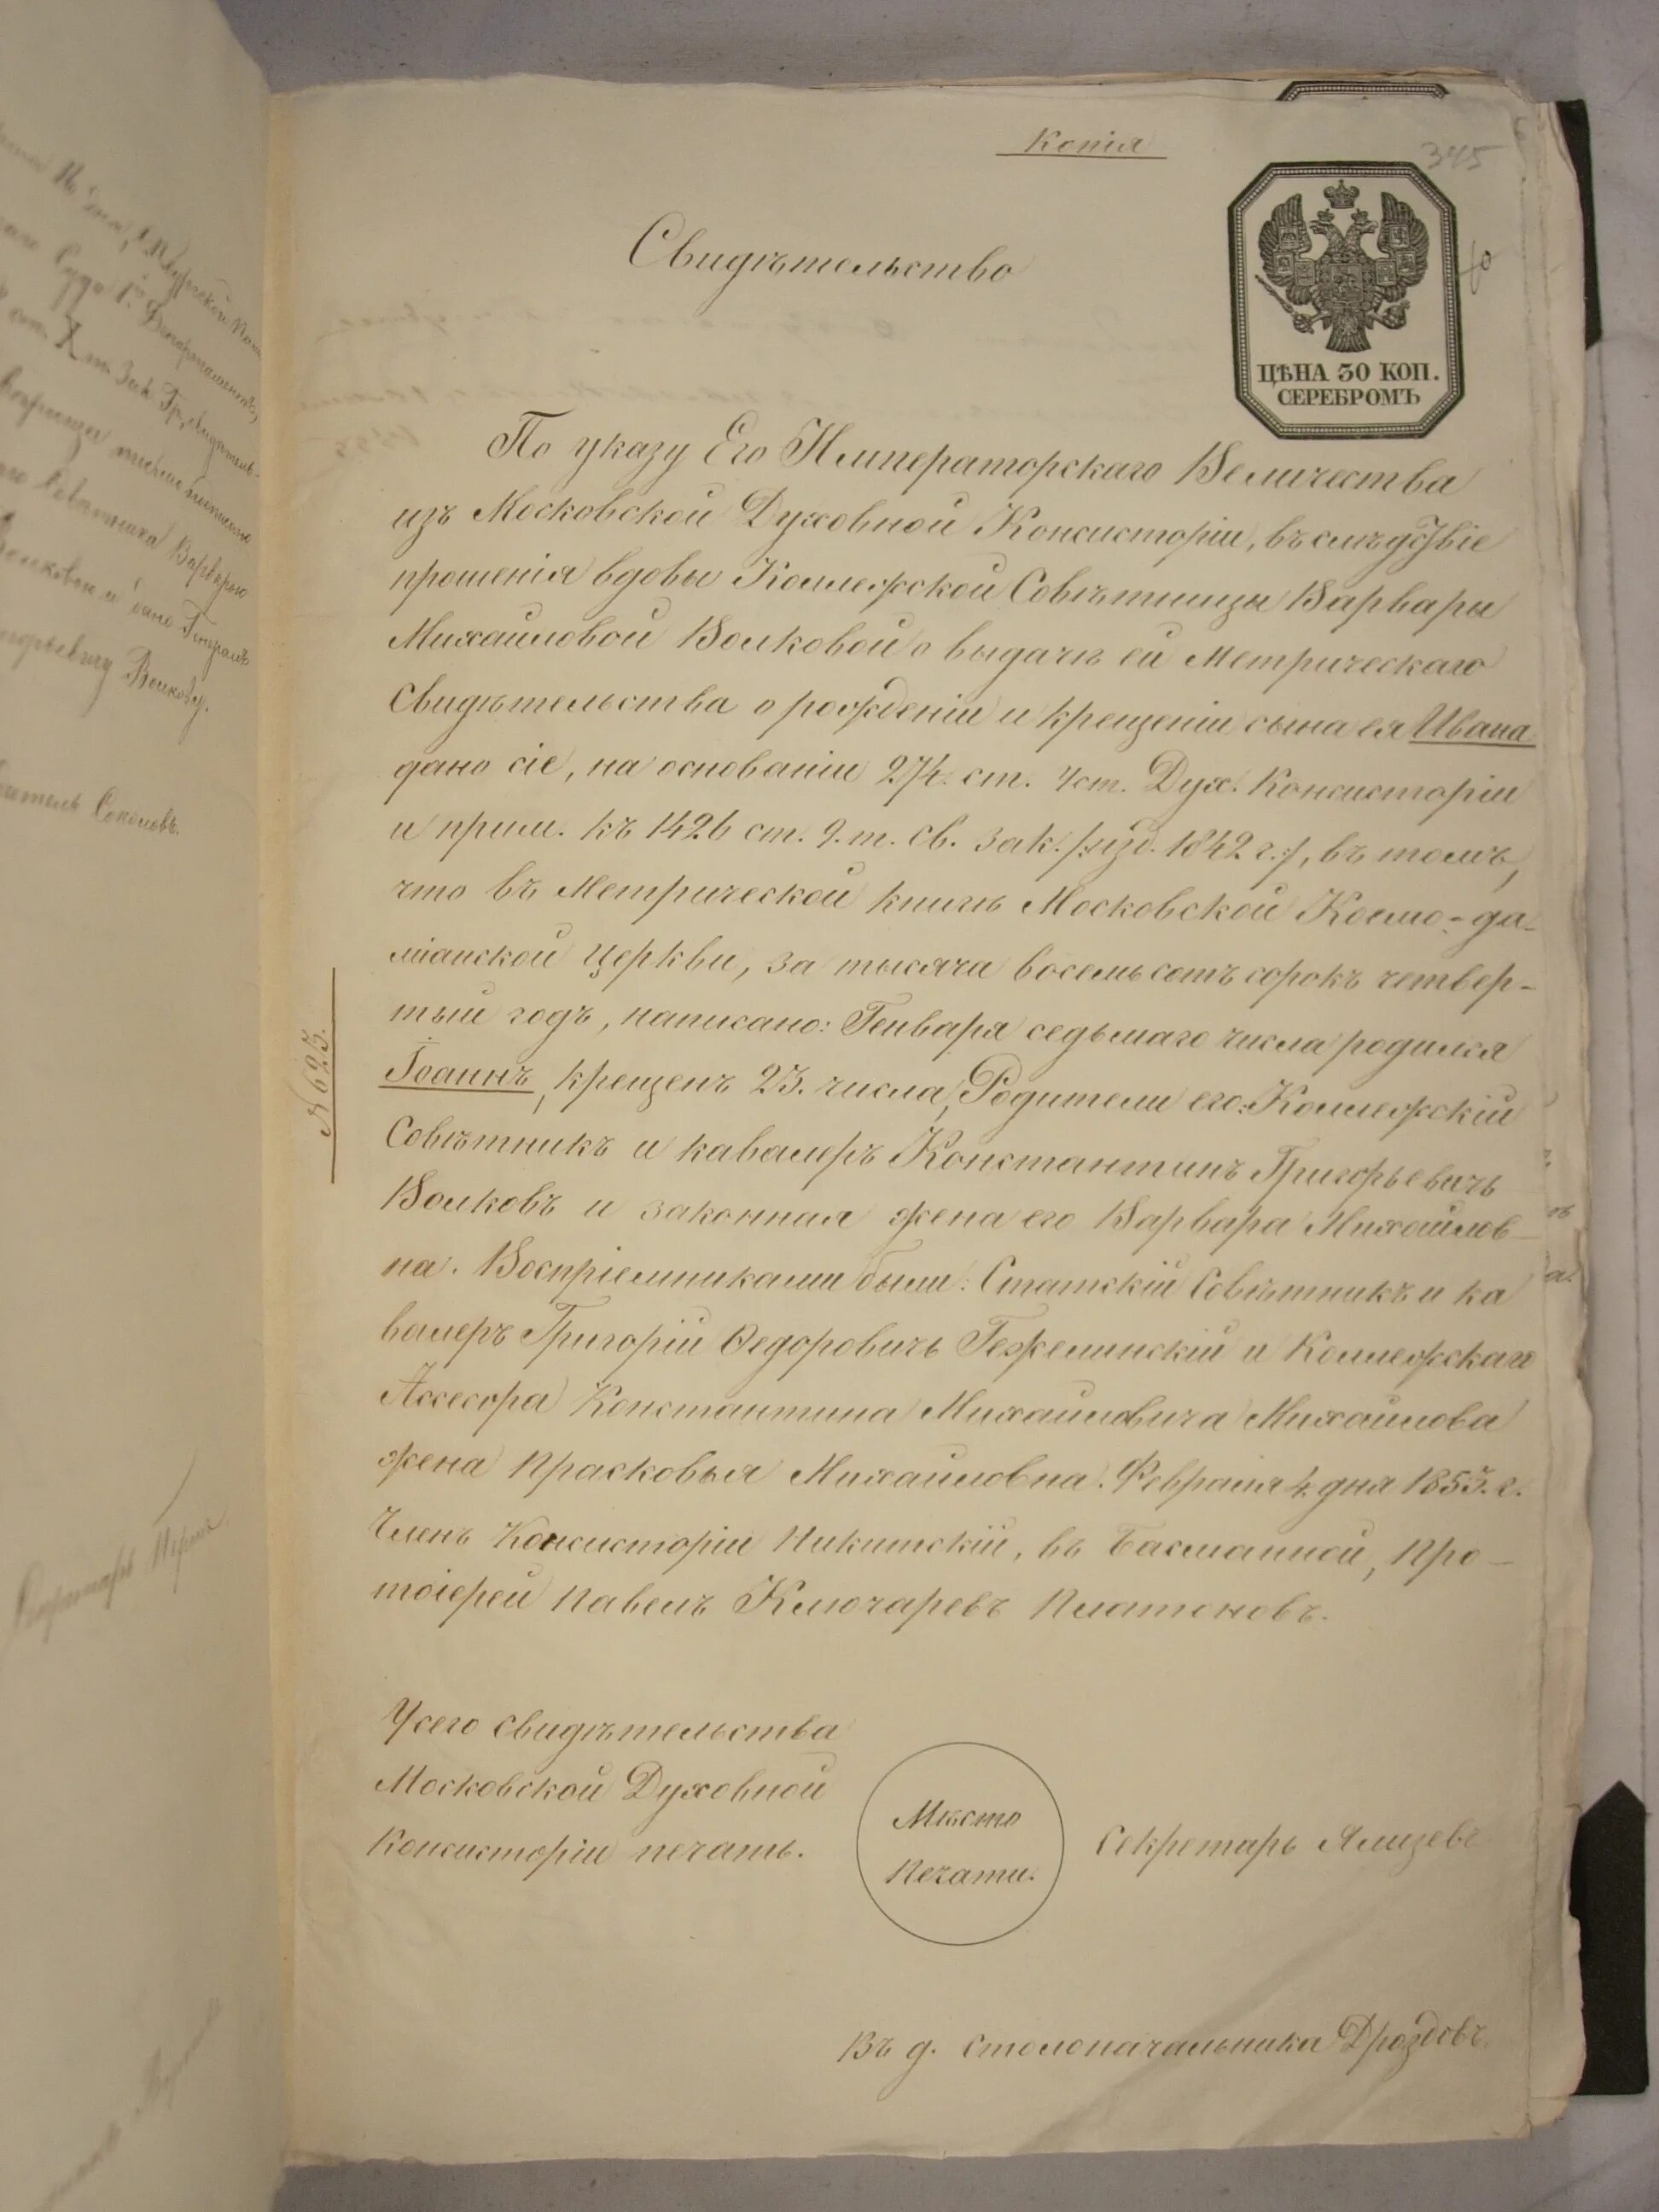 Копія
345
Свидѣтельство
ЦѢНА 30 КОП.
СЕРЕБРОМЪ
По указу Его Императорскаго Величества
изъ Московской Духовной Консисторіи, въ слѣдствіе
прошенія вдовы Коллежской Совѣтницы Варвары
Михайловой Волковой о выдачѣ ей Метрическаго
Свидѣтельства о рожденіи и крещеніи сына ея Ивана
дано сіе, на основаніи 274. ст. Уст. Дух. Консисторіи
и прим. къ 1426 ст. 9. т. Св. Зак. /:изд. 1842 г.:/, въ томъ,
что въ Метрической книгѣ Московской Космо-да-
міанской Церкви, за тысяча восемьсотъ сорокъ четвер-
тый годъ, написано: Генваря седьмаго числа родился
Іоаннъ, крещенъ 23. числа, Родители его: Коллежскій
Совѣтникъ и кавалеръ Константинъ Григорьевичь
Волковъ и законная жена его Варвара Михайлов-
на. Воспріемниками были: Статскій Совѣтникъ и ка
валеръ Григорій Ѳедоровичь Гежелинскій и Коллежскаго
Ассесора Константина Михайловича Михайлова
жена Прасковья Михайловна. Февраля 4. дня 1853. г.
Членъ Консисторіи Никитскій, въ Басманной, Про-
тоіерей Павелъ Ключаревъ Платоновъ.
№ 623.
У сего свидѣтельства
Московской Духовной
Консисторіи печать.
Мѣсто
Печати.
Секретарь Ялицев
Въ д. Столоначальника Дроздовъ.
Варварою
Волкову.
Соколовъ.